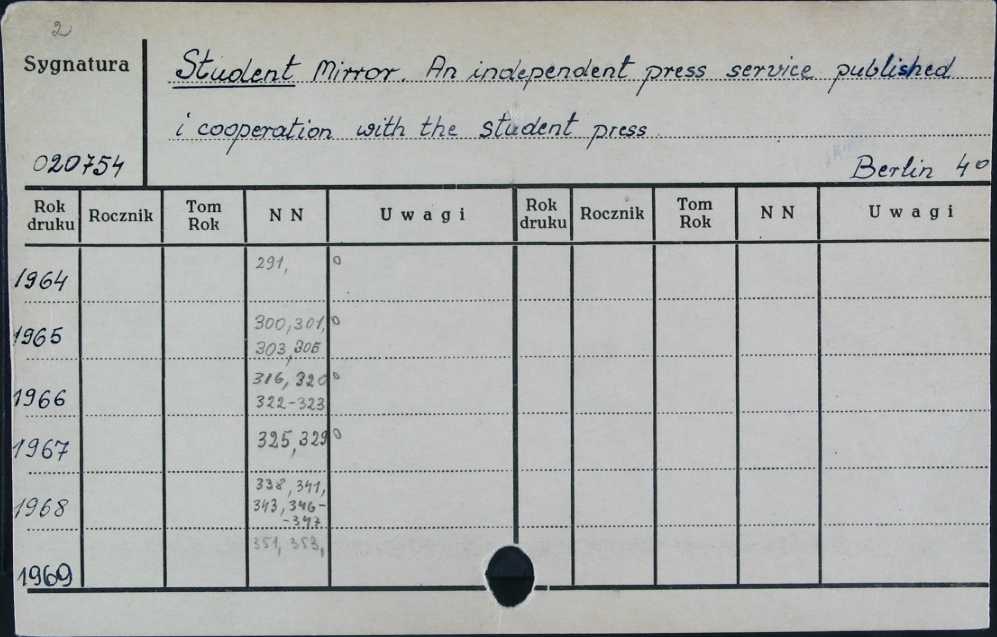 2
Sygnatura
Student Mirror. An independent press service published
i cooperation with the student press
020754
Berlin 4°
Rok druku Rocznik Tom Rok NN Uwagi Rok druku Rocznik Tom Rok NN Uwagi
1964 291, o
1965 300, 301, o
303, 305
1966 316, 320 o
322-323
1967 325, 329 o
1968 338, 341,
343, 346-
-347
1969 351, 353,